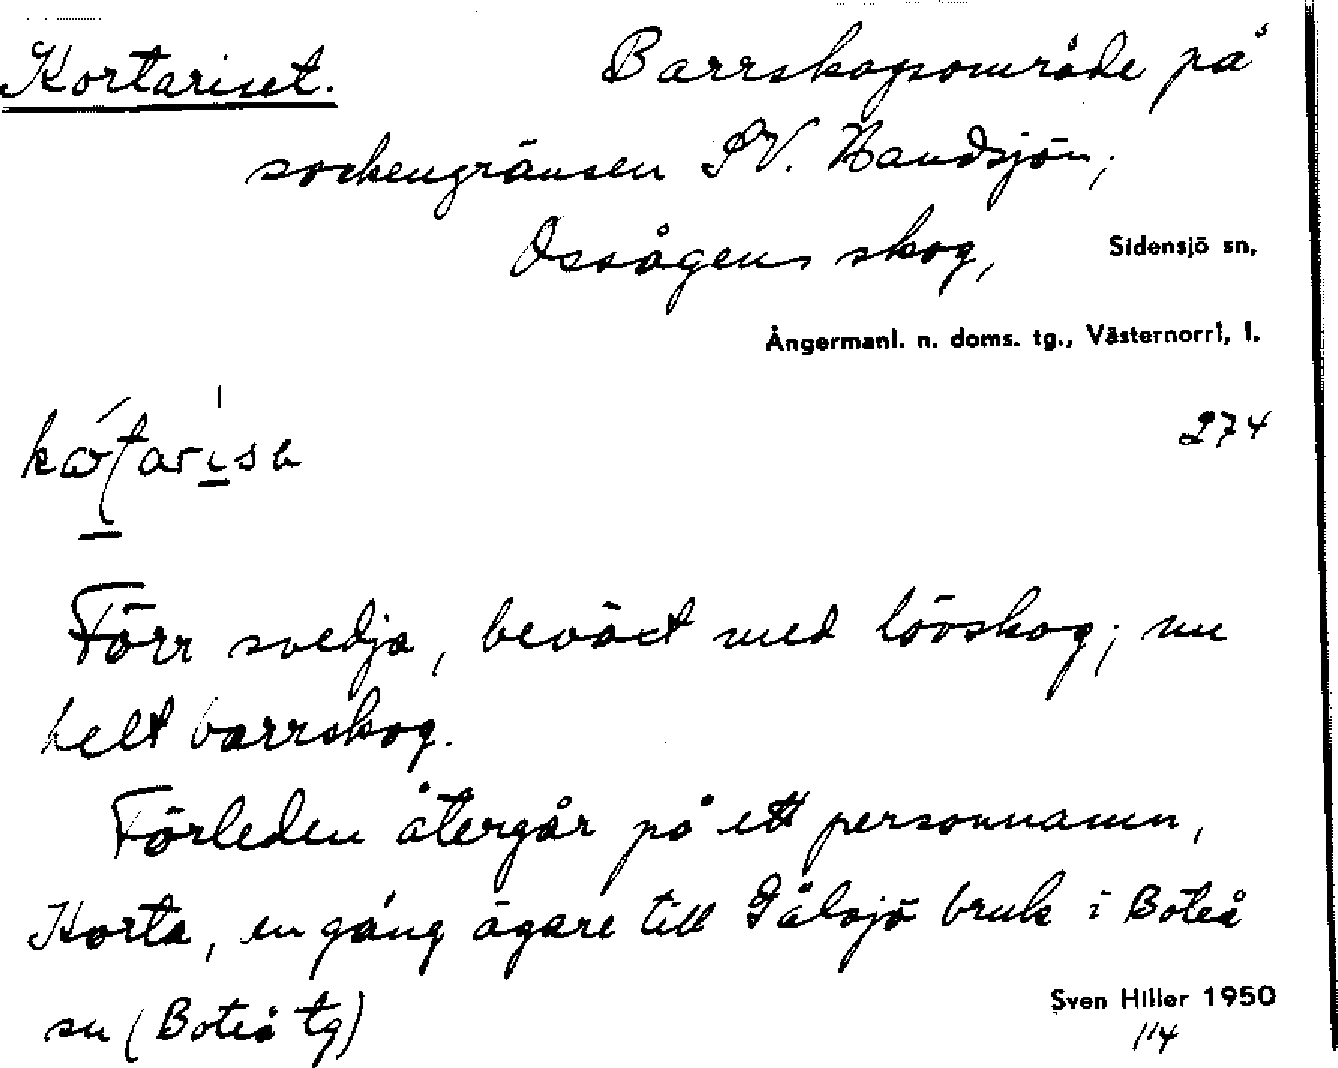 Kortariset. Barrskogsområde på
sockengränsen SV. Handsjön,
Ossågens skog, Sidensjö sn,
Ångermanl. n. doms. tg., Västernorrl. l.
274
Förr svedja, beväxt med lövskog; nu
helt barrskog.
Förleden återgår på ett personnamn,
Korta, en gång ägare till Gålsjö bruk i Boteå
sn (Boteå tg)
Sven Hiller 1950
114